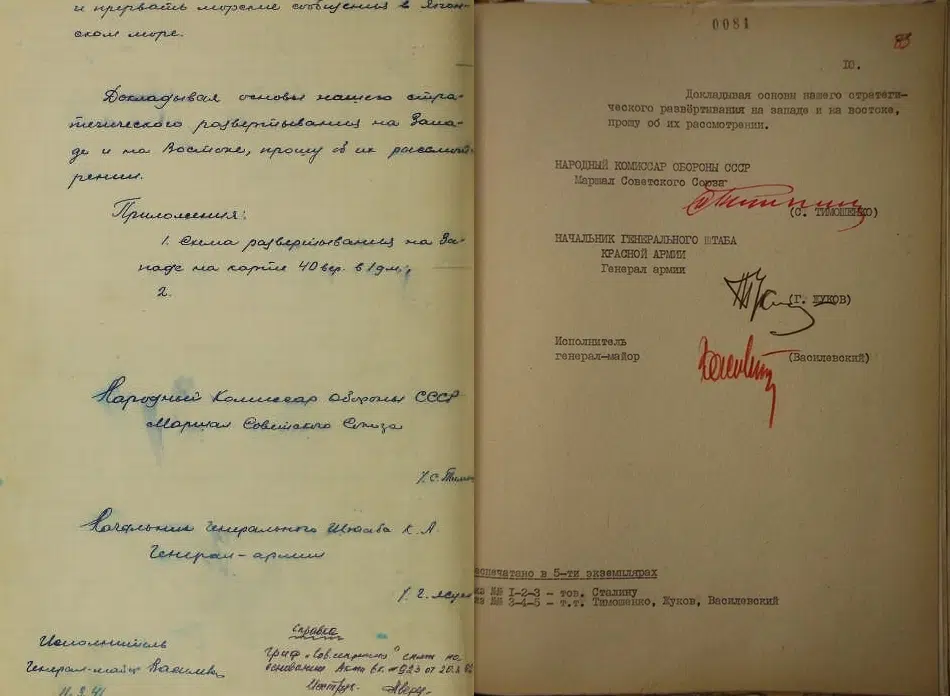 и прервать морские сообщения в Япон-
ском море.
Докладывая основы нашего стра-
тегического развертывания на Запа-
де и на Востоке, прошу об их рассмот-
рении.
Приложения:
1. Схема развертывания на За-
паде на карте 40 вер. в 1 дм.;
2.
Народный Комиссар Обороны СССР
Маршал Советского Союза
/С. Тимо
Начальник Генерального Штаба К. А.
Генерал-армии
/Г. Жук
Исполнитель
Генерал-майор Василевс
11.3.41
Справка
Гриф "Сов. секретно" снят на
основании Акта вх. №923 от
0081
83
10.
Докладывая основы нашего стратеги-
ческого развёртывания на западе и на востоке,
прошу об их рассмотрении.
НАРОДНЫЙ КОМИССАР ОБОРОНЫ СССР
Маршал Советского Союза
(С. ТИМОШЕНКО)
НАЧАЛЬНИК ГЕНЕРАЛЬНОГО ШТАБА
КРАСНОЙ АРМИИ
Генерал армии
(Г. ЖУКОВ)
Исполнитель
генерал-майор (Василевский)
аспечатано в 5-ти экземплярах
№№ 1-2-3 - тов. Сталину
№№ 3-4-5 - т.т. Тимошенко, Жуков, Василевский